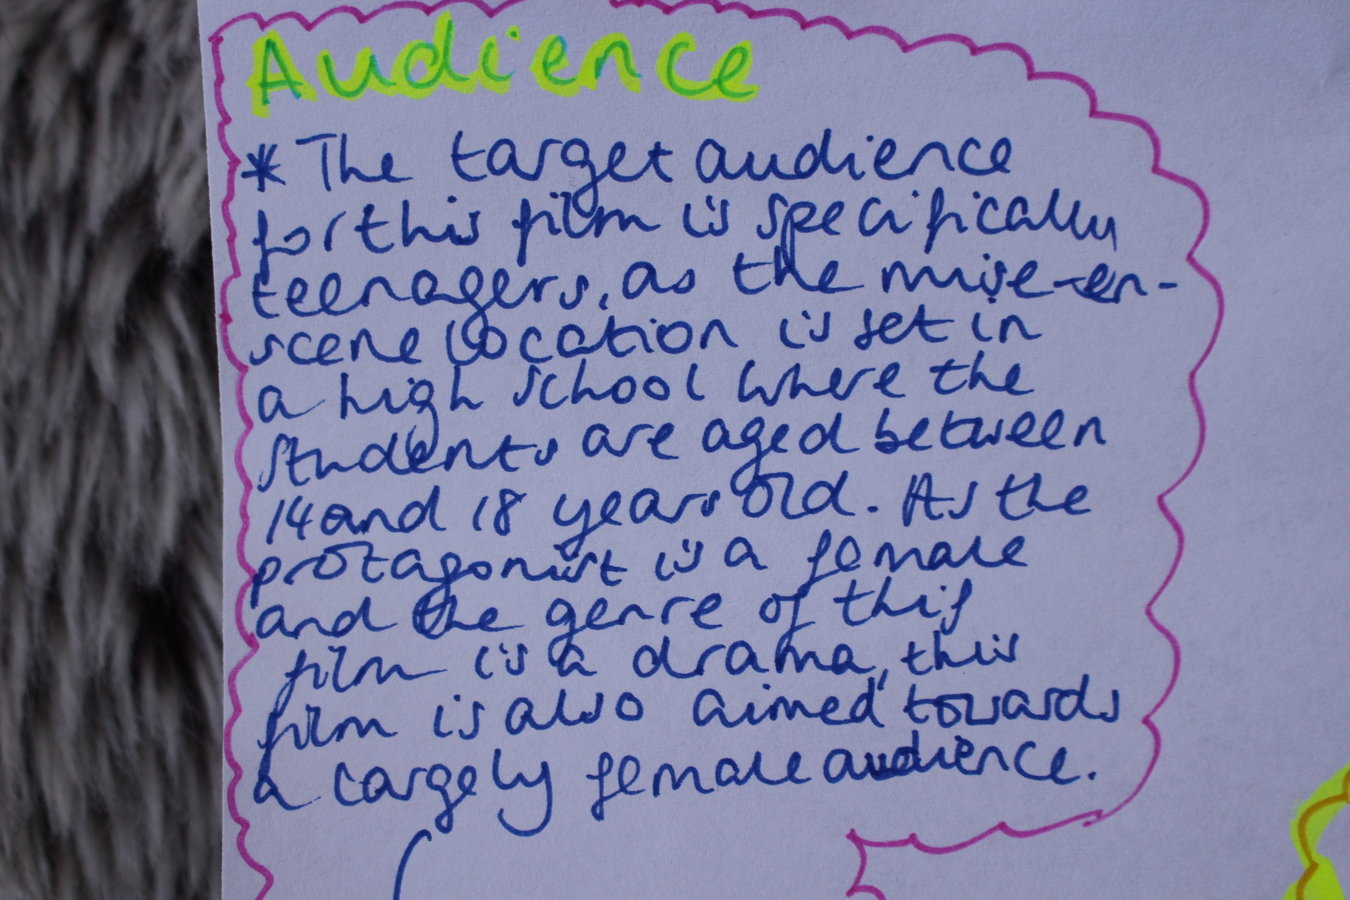 Audience
* The target audience
for this film is specifically
teenagers, as the mise-en-
scene location is set in
a high school where the
students are aged between
14 and 18 years old. As the
protagonist is a female
and the genre of this
film is a drama, this
film is also aimed towards
a largely female audience.